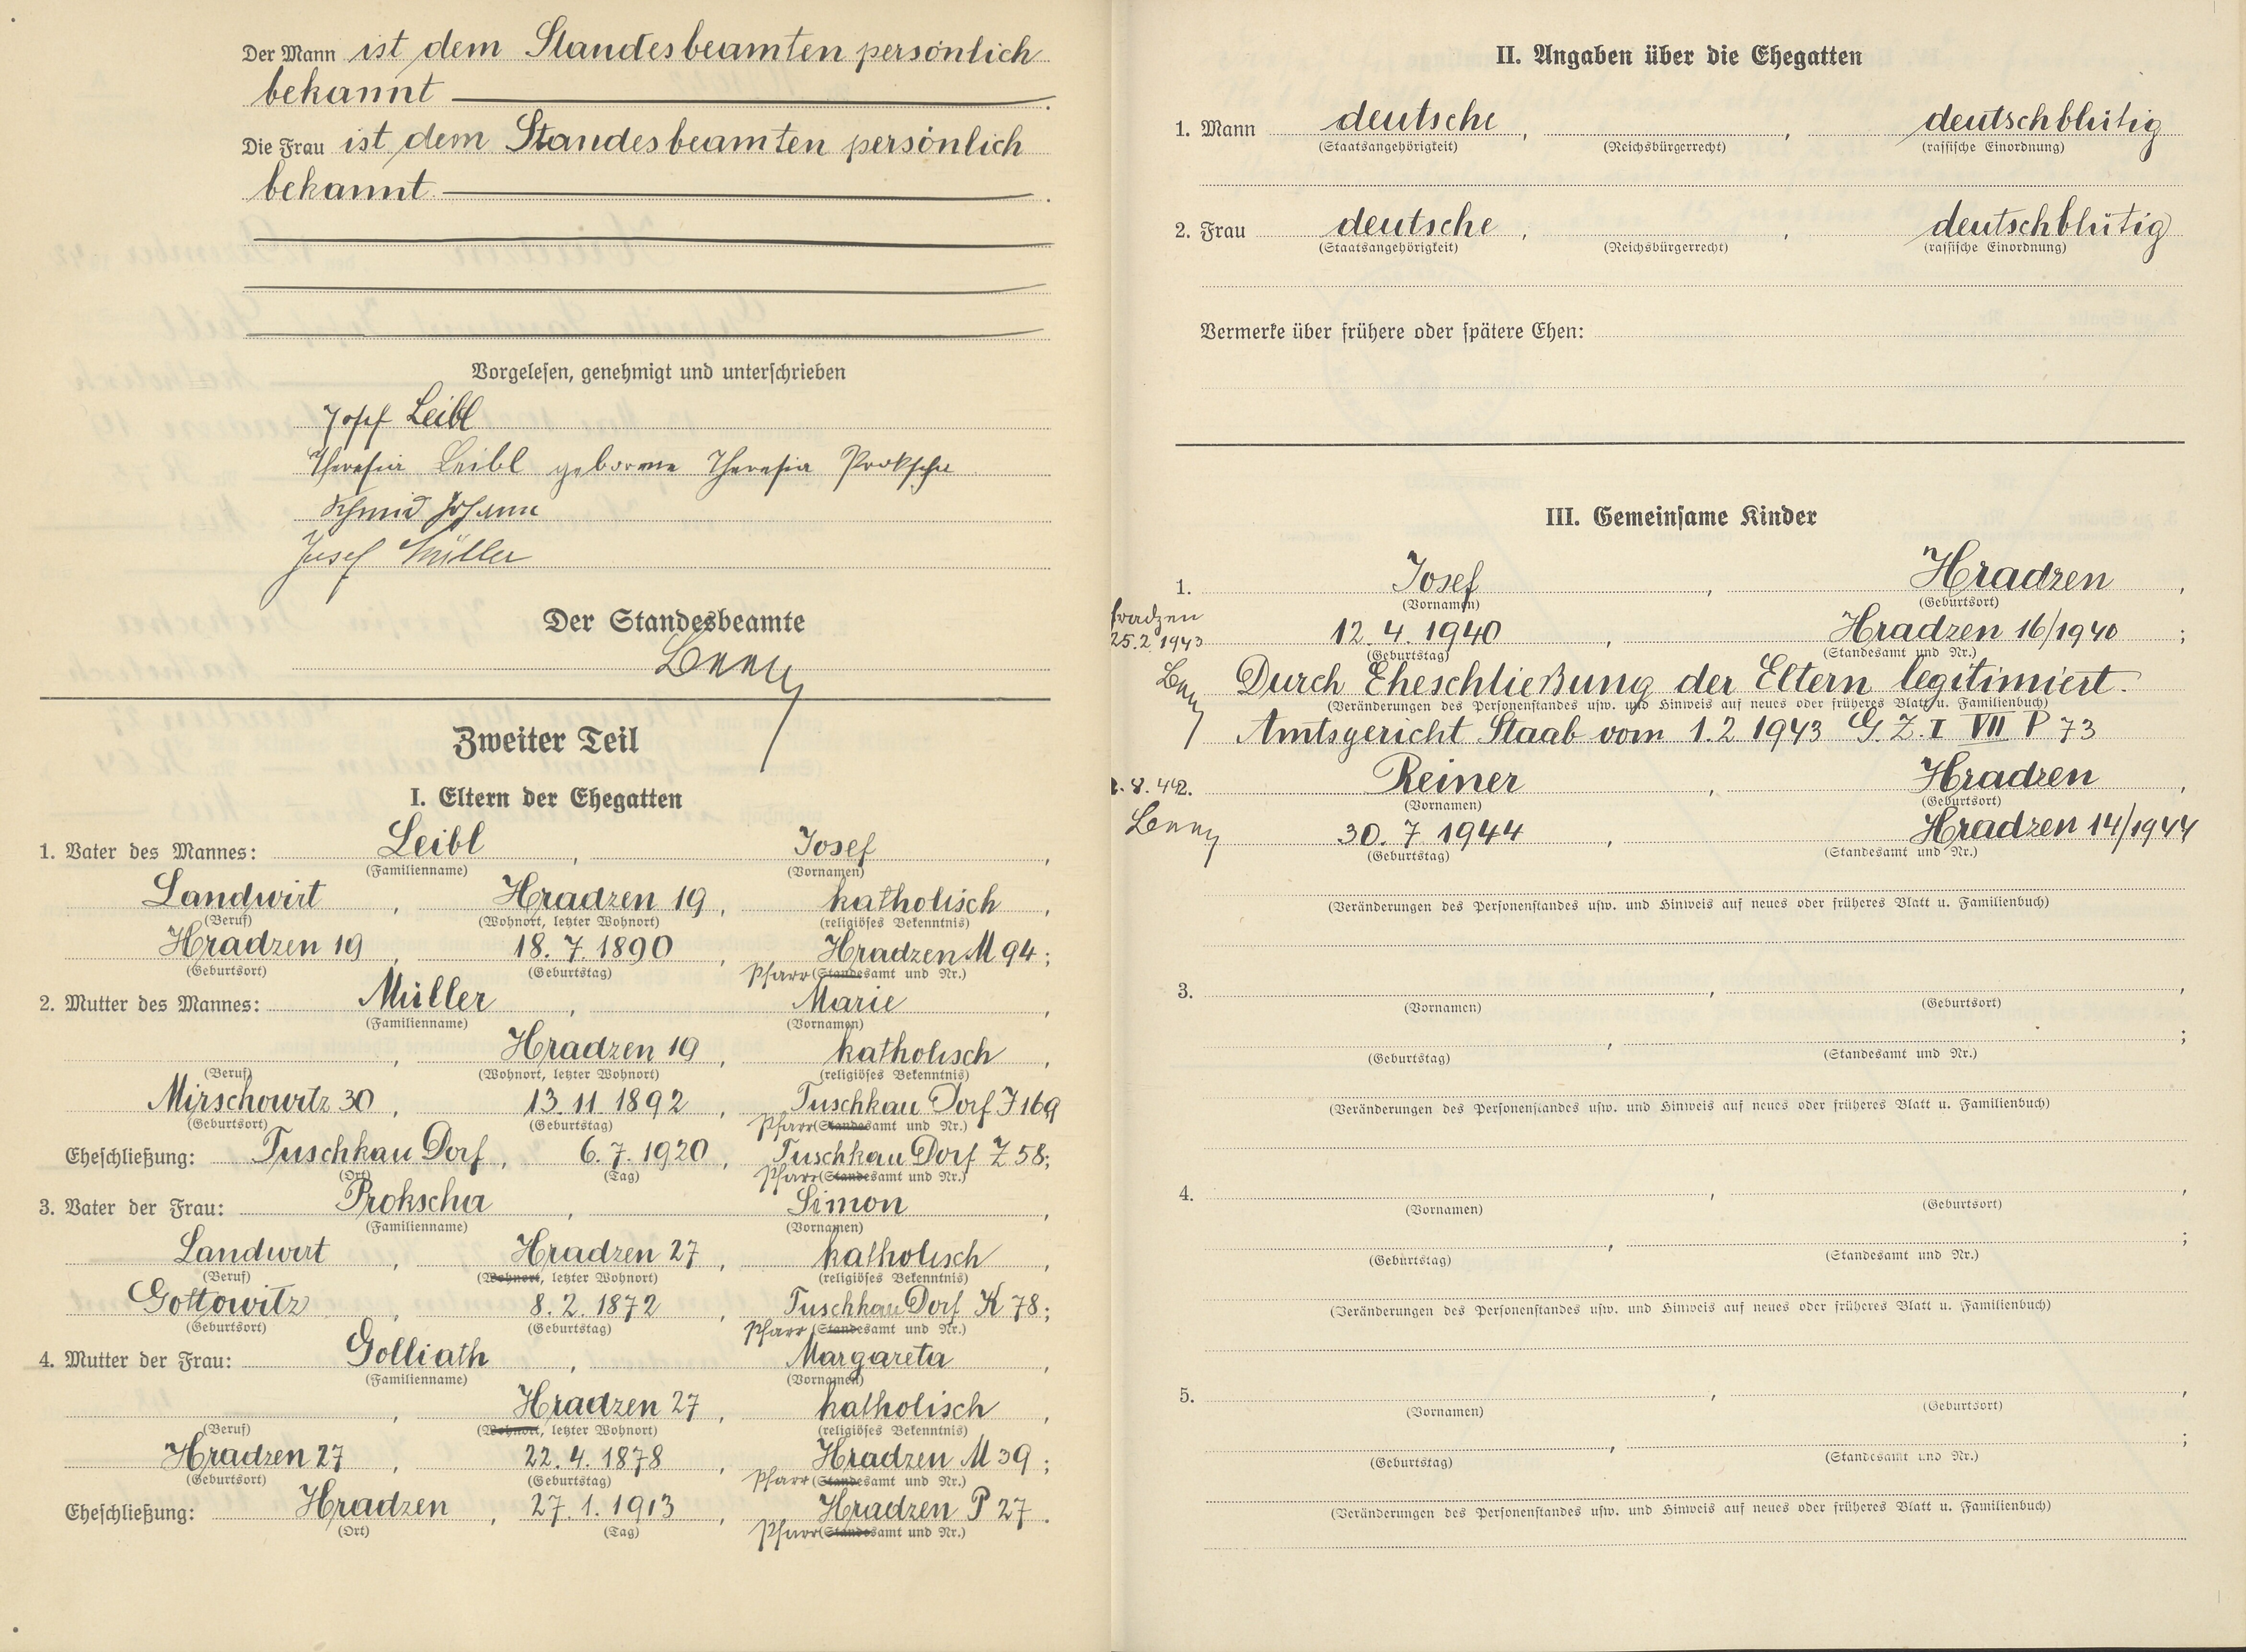 Der Mann ist dem Standesbeamten persönlich
bekannt
Die Frau ist dem Standesbeamten persönlich
bekannt
Vorgelesen, genehmigt und unterschrieben
Josef Leibl
Theresia Leibl geborene Theresia Prokscha
Schmid Johann
Josef Müller
Der Standesbeamte
Zweiter Teil
I. Eltern der Ehegatten
1. Vater des Mannes: Leibl, Josef,
(Familienname) (Vornamen)
Landwirt, Hradzen 19, katholisch,
(Beruf) (Wohnort, letzter Wohnort) (religiöses Bekenntnis)
Hradzen 19, 18. 7. 1890, Hradzen M 94;
(Geburtsort) (Geburtstag) Pfarr (Standesamt und Nr.)
2. Mutter des Mannes: Müller, Marie,
(Familienname) (Vornamen)
, Hradzen 19, katholisch,
(Beruf) (Wohnort, letzter Wohnort) (religiöses Bekenntnis)
Mirschowitz 30, 13. 11. 1892, Tuschkau Dorf J 169
(Geburtsort) (Geburtstag) Pfarr (Standesamt und Nr.)
Eheschließung: Tuschkau Dorf, 6. 7. 1920, Tuschkau Dorf Z 58;
(Ort) (Tag) Pfarr (Standesamt und Nr.)
3. Vater der Frau: Prokscha, Simon,
(Familienname) (Vornamen)
Landwirt, Hradzen 27, katholisch,
(Beruf) (Wohnort, letzter Wohnort) (religiöses Bekenntnis)
Gottowitz, 8. 2. 1872, Tuschkau Dorf K 78;
(Geburtsort) (Geburtstag) Pfarr (Standesamt und Nr.)
4. Mutter der Frau: Golliath, Margareta,
(Familienname) (Vornamen)
, Hradzen 27, katholisch,
(Beruf) (Wohnort, letzter Wohnort) (religiöses Bekenntnis)
Hradzen 27, 22. 4. 1878, Hradzen M 39;
(Geburtsort) (Geburtstag) Pfarr (Standesamt und Nr.)
Eheschließung: Hradzen, 27. 1. 1913, Hradzen P 27.
(Ort) (Tag) Pfarr (Standesamt und Nr.)
II. Angaben über die Ehegatten
1. Mann deutsche, , deutschblütig
(Staatsangehörigkeit) (Reichsbürgerrecht) (rassische Einordnung)
2. Frau deutsche, , deutschblütig
(Staatsangehörigkeit) (Reichsbürgerrecht) (rassische Einordnung)
Vermerke über frühere oder spätere Ehen:
III. Gemeinsame Kinder
1. Josef, Hradzen,
(Vornamen) (Geburtsort)
25.2.1943 12. 4. 1940, Hradzen 16/1940;
(Geburtstag) (Standesamt und Nr.)
Durch Eheschließung der Eltern legitimiert.
(Veränderungen des Personenstandes usw. und Hinweis auf neues oder früheres Blatt u. Familienbuch)
Amtsgericht Staab vom 1. 2. 1943 G. Z. I VII P 73
2. Reiner, Hradzen,
(Vornamen) (Geburtsort)
30. 7. 1944, Hradzen 14/1944
(Geburtstag) (Standesamt und Nr.)
(Veränderungen des Personenstandes usw. und Hinweis auf neues oder früheres Blatt u. Familienbuch)
3. , ,
(Vornamen) (Geburtsort)
, ;
(Geburtstag) (Standesamt und Nr.)
(Veränderungen des Personenstandes usw. und Hinweis auf neues oder früheres Blatt u. Familienbuch)
4. , ,
(Vornamen) (Geburtsort)
, ;
(Geburtstag) (Standesamt und Nr.)
(Veränderungen des Personenstandes usw. und Hinweis auf neues oder früheres Blatt u. Familienbuch)
5. , ,
(Vornamen) (Geburtsort)
, ;
(Geburtstag) (Standesamt und Nr.)
(Veränderungen des Personenstandes usw. und Hinweis auf neues oder früheres Blatt u. Familienbuch)